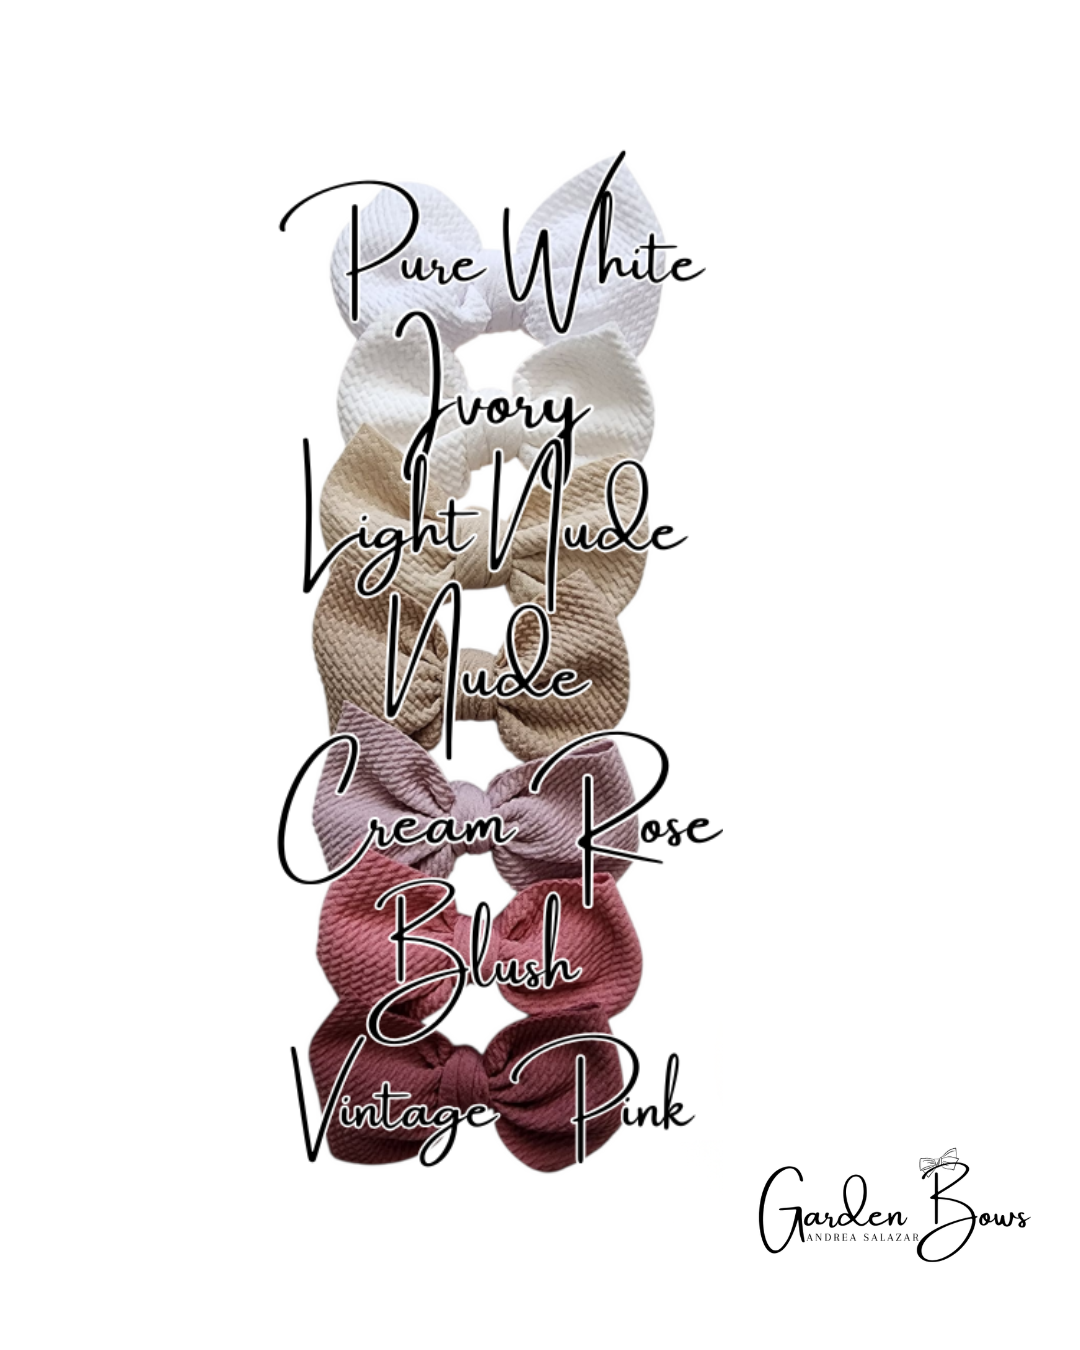 Pure White
Ivory
Light Nude
Nude
Cream Rose
Blush
Vintage Pink
Garden Bows
ANDREA SALAZAR